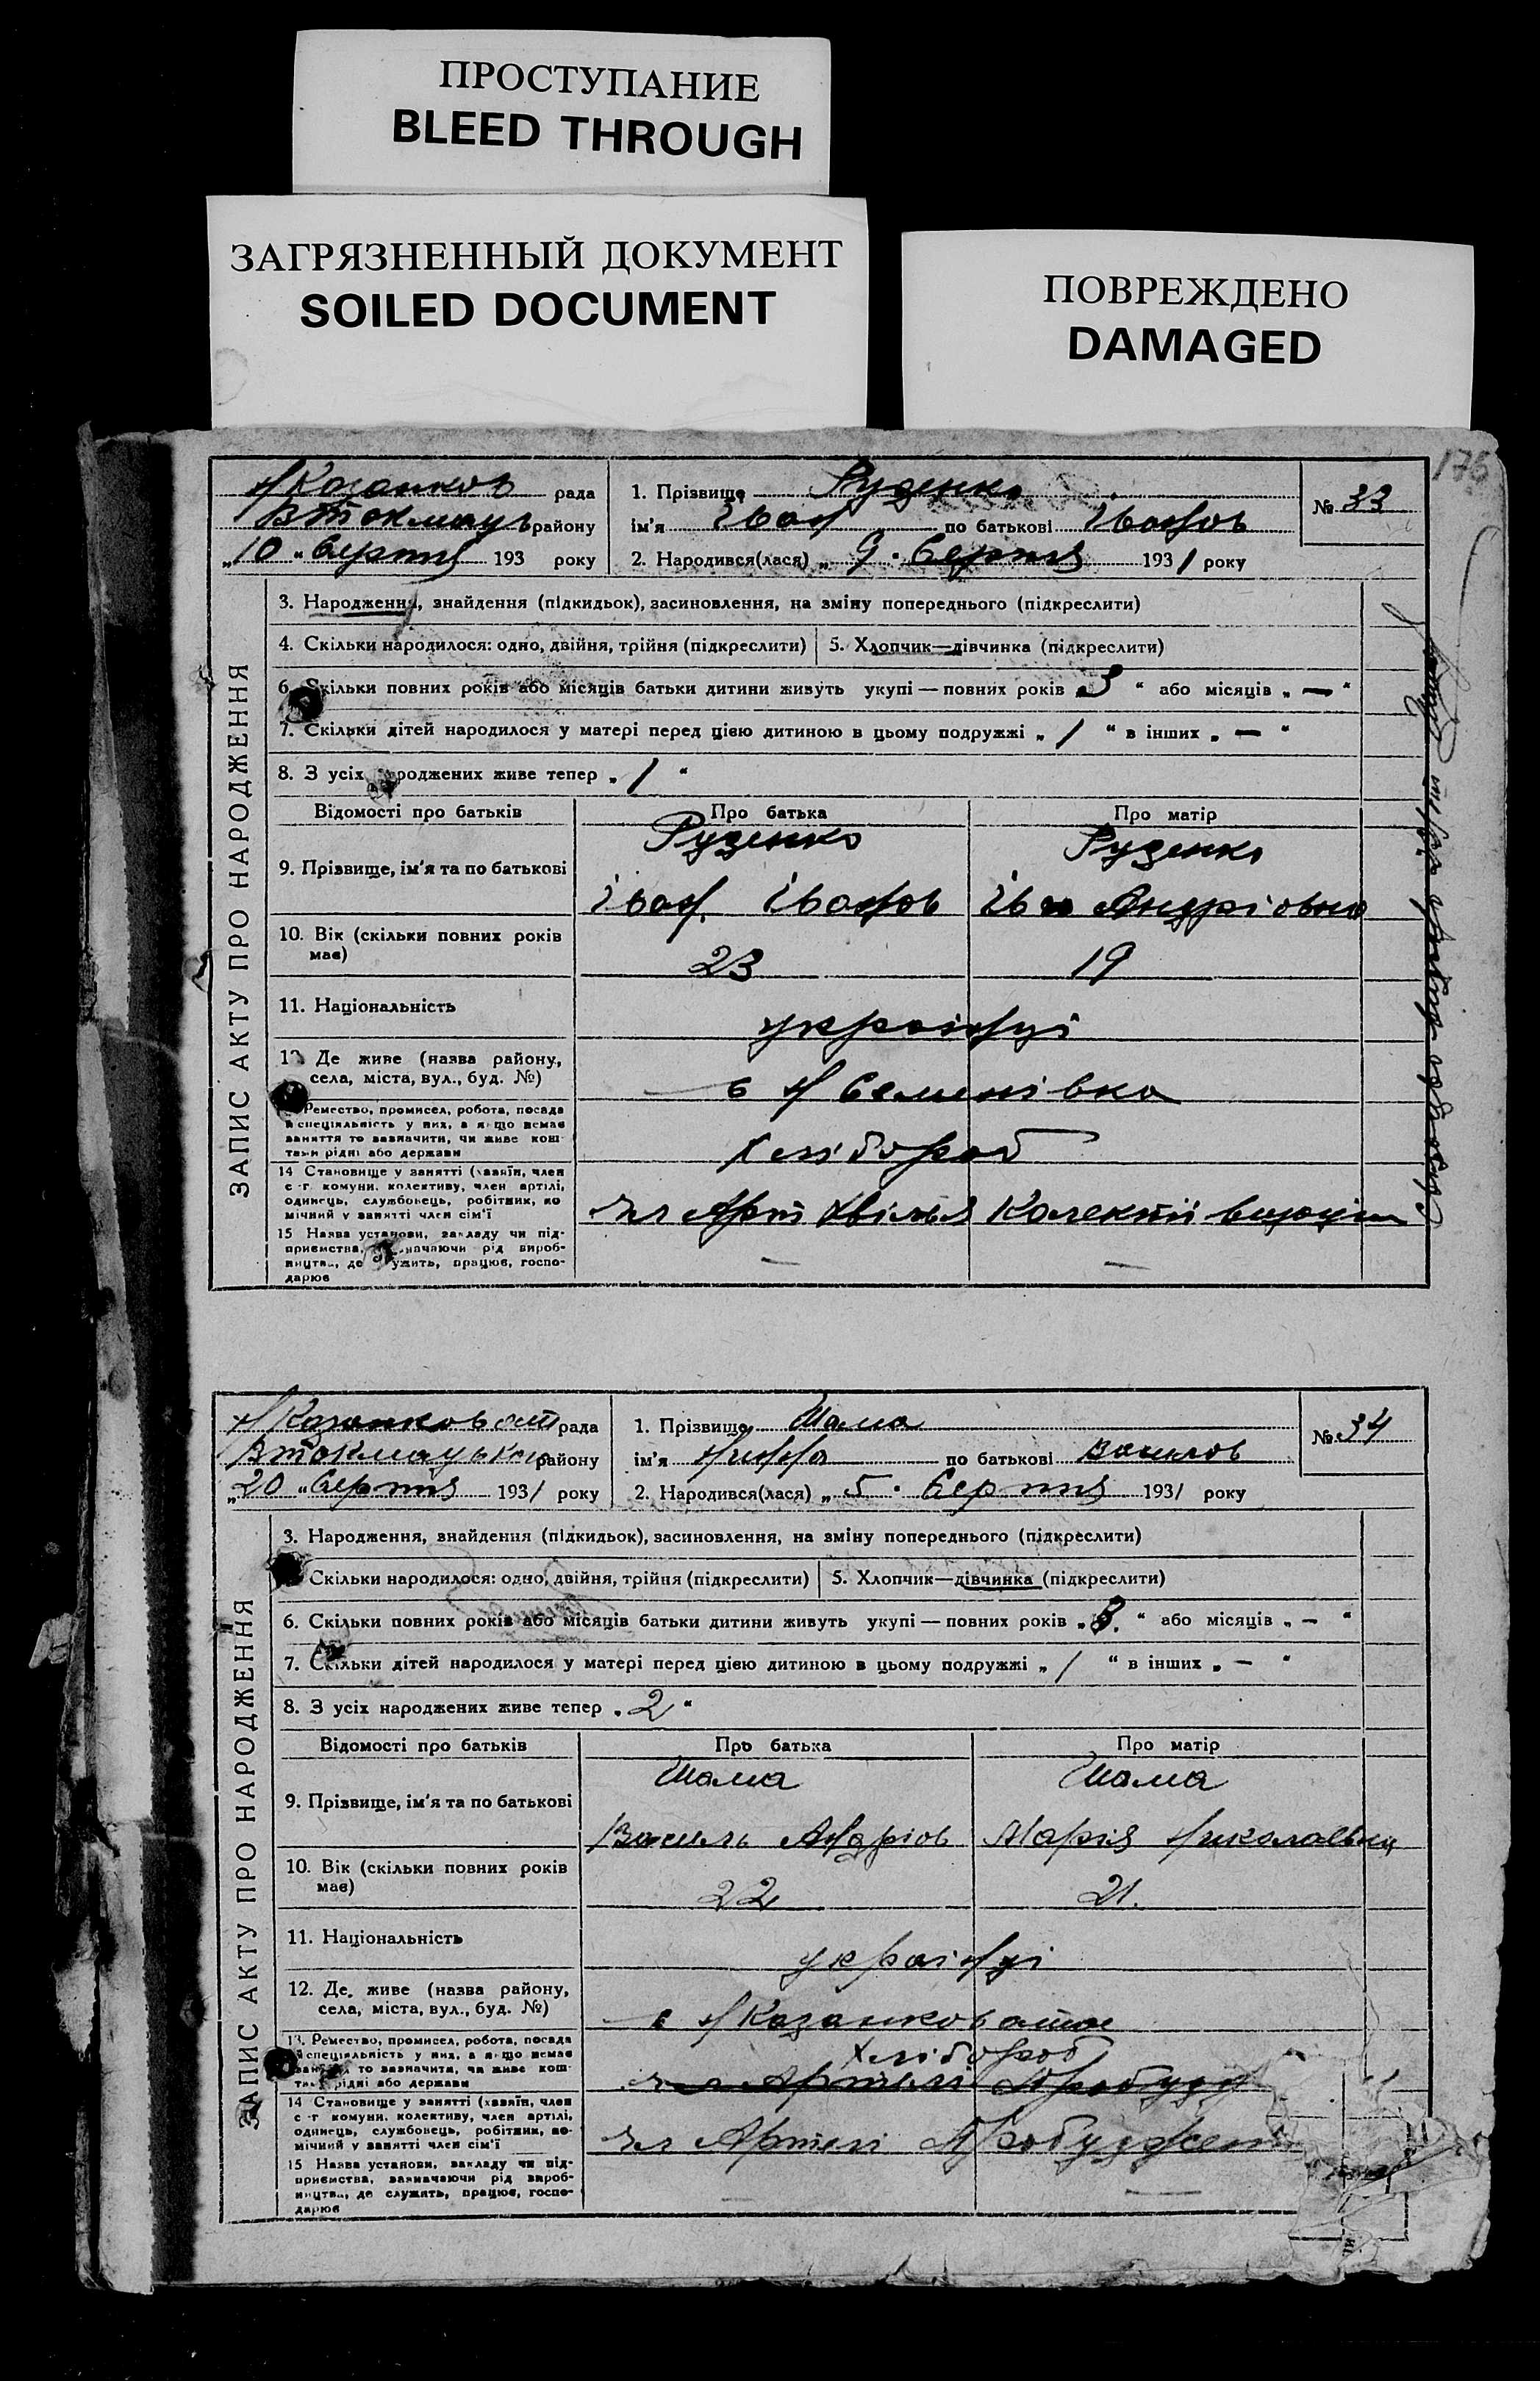 ПРОСТУПАНИЕ
BLEED THROUGH
ЗАГРЯЗНЕННЫЙ ДОКУМЕНТ
SOILED DOCUMENT
ПОВРЕЖДЕНО
DAMAGED
175
Н Казанков рада
ВТокмацьк району
„10 " Серпня 193 року
1. Прізвище Руденко
ім'я Іван по батькові Іванов
2. Народився(лася) „ 9 . Серпня 1931 року
№ 33
ЗАПИС АКТУ ПРО НАРОДЖЕННЯ
3. Народження, знайдення (підкидьок), засиновлення, на зміну попереднього (підкреслити)
4. Скільки народилося: одно, двійня, трійня (підкреслити) 5. Хлопчик—дівчинка (підкреслити)
6. Скільки повних років або місяців батьки дитини живуть укупі — повних років „ 3 " або місяців „ — "
7. Скільки дітей народилося у матері перед цією дитиною в цьому подружжі „ 1 " в інших „ — "
8. З усіх народжених живе тепер „ 1 "
Відомості про батьків Про батька Про матір
9. Прізвище, ім'я та по батькові
Руденко Руденко
Іван Іванов Андріовна
10. Вік (скільки повних років має) 23 19
11. Національність українці
12. Де живе (назва району, села, міста, вул., буд. №) с Н Семенівка
Ремество, промисел, робота, посада й спеціяльність у них, а якщо немає заняття то зазначити, чи живе коштами рідні або держави
Хлібороб
14 Становище у занятті (хазяїн, член с.-г. комуни, колективу, член артілі, одинець, службовець, робітник, помічний у занятті член сім'ї
чл Арт Хвиля Колекти
15 Назва установи, закладу чи підприємства, зазначаючи рід виробництва, де служить, працює, господарює
— —
Н Казанковат рада
ВТокмацьким району
„20 " Серпня 1931 року
1. Прізвище Шама
ім'я Нинна по батькові Василов
2. Народився(лася) „ 5 . Серпня 1931 року
№ 34
ЗАПИС АКТУ ПРО НАРОДЖЕННЯ
3. Народження, знайдення (підкидьок), засиновлення, на зміну попереднього (підкреслити)
Скільки народилося: одно, двійня, трійня (підкреслити) 5. Хлопчик—дівчинка (підкреслити)
6. Скільки повних років або місяців батьки дитини живуть укупі — повних років „ 3. " або місяців „ — "
7. Скільки дітей народилося у матері перед цією дитиною в цьому подружжі „ 1 " в інших „ — "
8. З усіх народжених живе тепер „ 2 "
Відомості про батьків Про батька Про матір
9. Прізвище, ім'я та по батькові
Шама Шама
Василь Андріов Марія Николаевна
10. Вік (скільки повних років має) 22 21.
11. Національність українці
12. Де живе (назва району, села, міста, вул., буд. №) с Н Казанковатое
13. Ремество, промисел, робота, посада й спеціяльність у них, а якщо немає заняття то зазначити, чи живе коштами рідні або держави
Хлібороб
чл Артілі Пробудж
14 Становище у занятті (хазяїн, член с.-г. комуни, колективу, член артілі, одинець, службовець, робітник, помічний у занятті член сім'ї
чл Артілі Пробуджен
15 Назва установи, закладу чи підприємства, зазначаючи рід виробництва, де служить, працює, господарює
— —